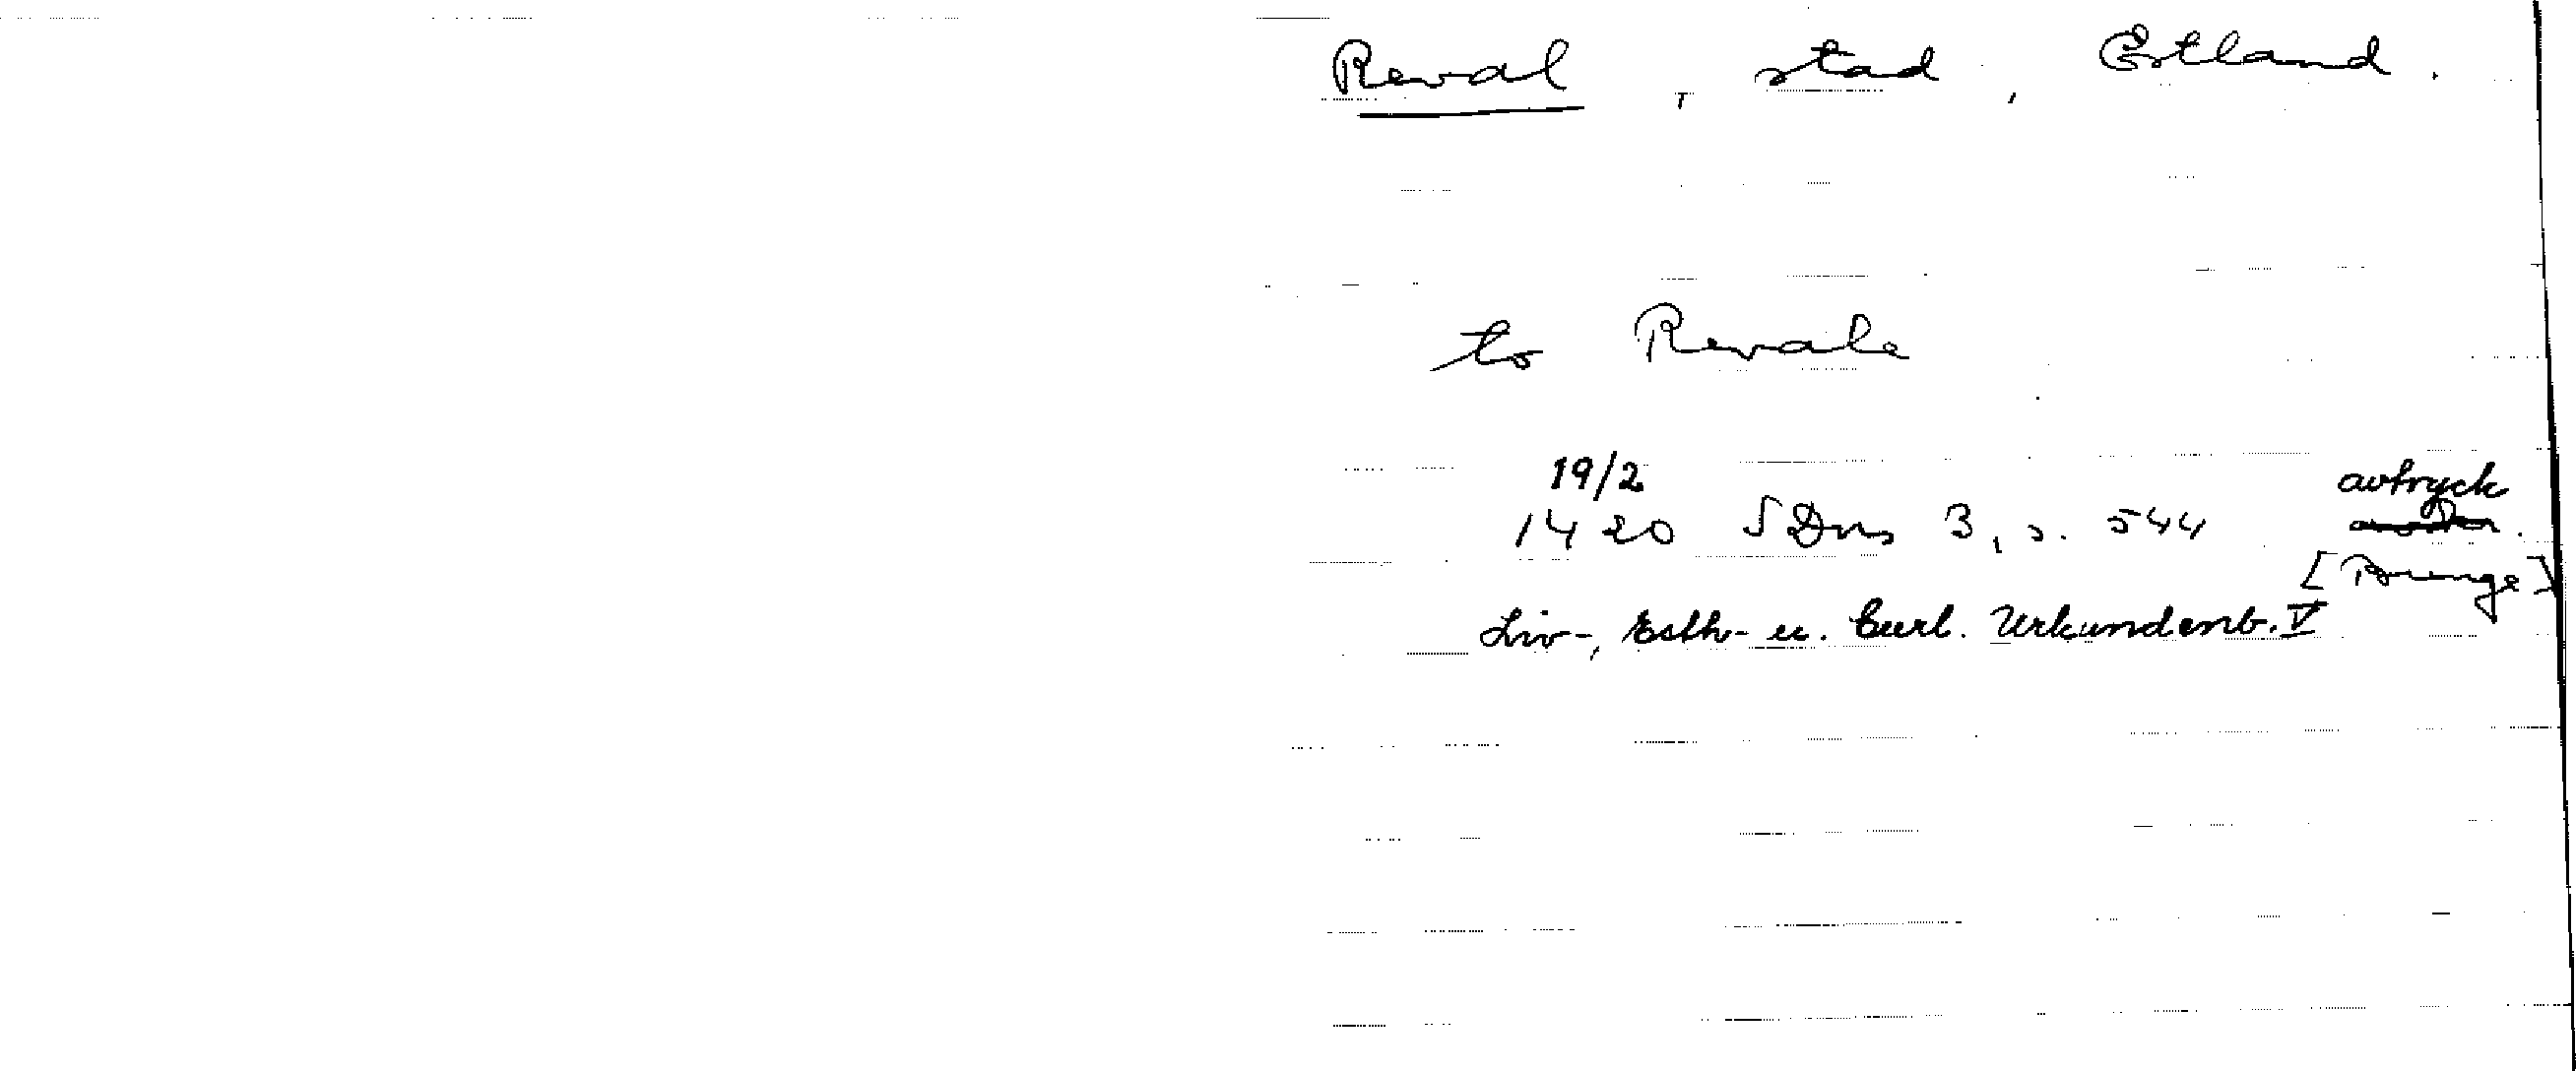 Reval, stad, Estland.
to Revale
19/2 avtryck
1420 SDns 3, s. 544
[Bunge]
Liv-, Esth- u. Curl. Urkundenb. V